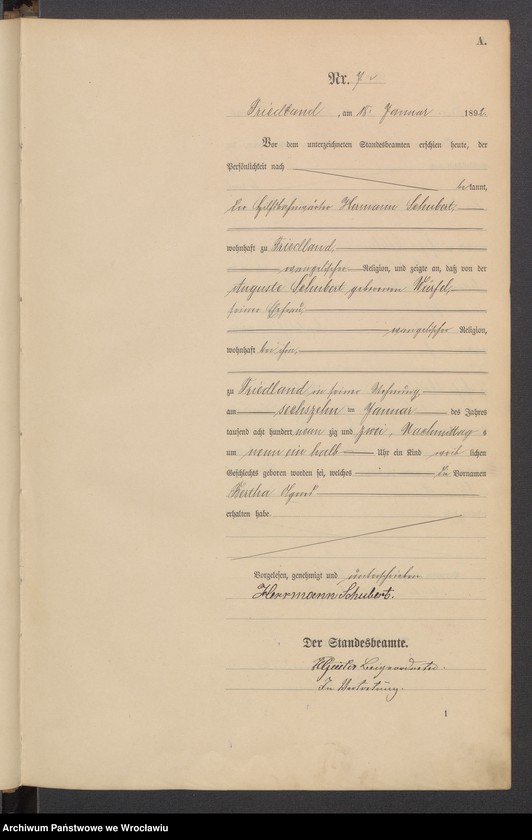 A.
Nr. 7
Friedland, am 18. Januar 1892.
Vor dem unterzeichneten Standesbeamten erschien heute, der
Persönlichkeit nach
bekannt,
der Hilfsbahnwärter Hermann Schubert,
wohnhaft zu Friedland,
evangelischer Religion, und zeigte an, daß von der
Auguste Schubert geborenen
seiner Ehefrau,
evangelischer Religion,
wohnhaft bei ihm,
zu Friedland in seiner Wohnung
am sechszehn ten Januar des Jahres
tausend acht hundert neun zig und zwei, Nachmittag s
um neun ein halb Uhr ein Kind weib lichen
Geschlechts geboren worden sei, welches die Vornamen
Bertha
erhalten habe.
Vorgelesen, genehmigt und unterschrieben
Herrmann Schubert.
Der Standesbeamte.
Beigeordneter.
In Vertretung.
1
Archiwum Państwowe we Wrocławiu